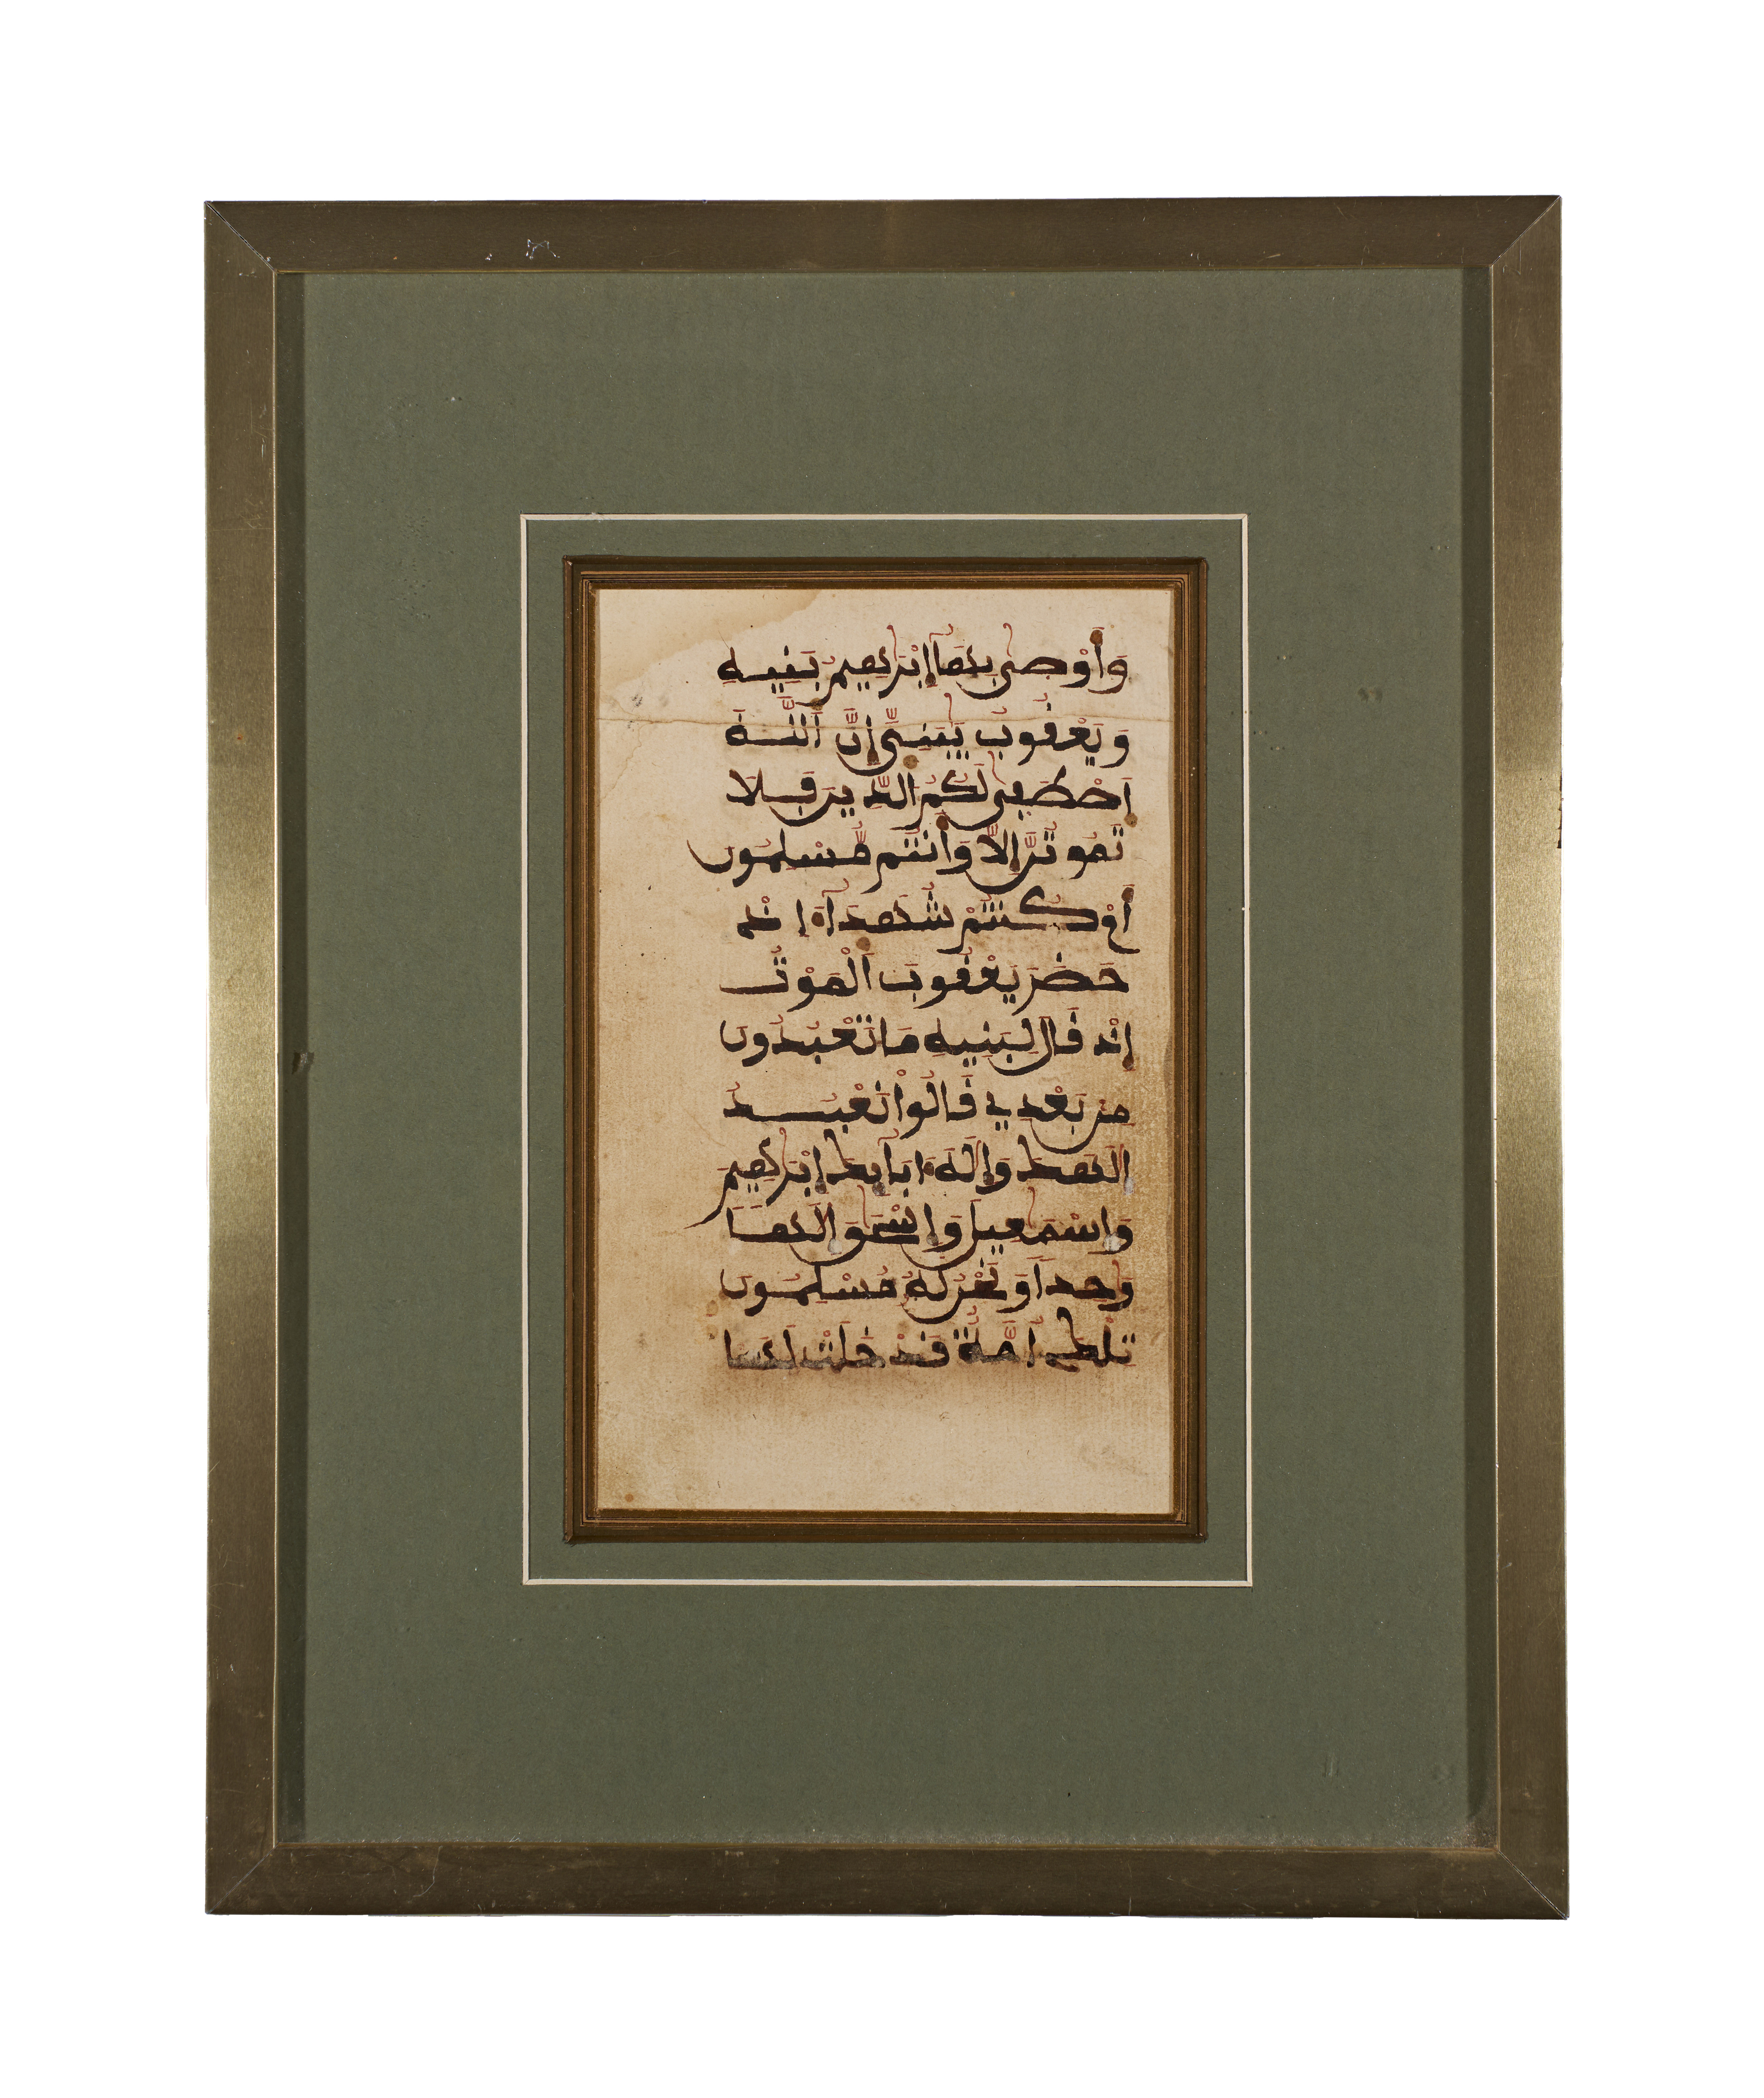 وَأَوْصىٰ بِهَآ إِبْرَٰهِيمُ بَنِيهِ
وَيَعْقُوبُ يَٰبَنِىَّ إِنَّ اَللَّهَ
اَصْطَفىٰ لَكُمُ الدِّينَ فَلَا
تَمُوتُنَّ إِلَّا وَأَنتُم مُّسْلِمُونَ
أَمْ كُنتُمْ شُهَدَآءَ إِذْ
حَضَرَ يَعْقُوبَ اَلْمَوْتُ
إِذْ قَالَ لِبَنِيهِ مَا تَعْبُدُونَ
مِن بَعْدِي قَالُواْ نَعْبُدُ
إِلَٰهَكَ وَإِلَٰهَ ءَابَآئِكَ إِبْرَٰهِيمَ
وَإِسْمَٰعِيلَ وَإِسْحَٰقَ إِلَٰهًا
وَٰحِدًا وَنَحْنُ لَهُ مُسْلِمُونَ
تِلْكَ أُمَّةٌ قَدْ خَلَتْ لَهَا